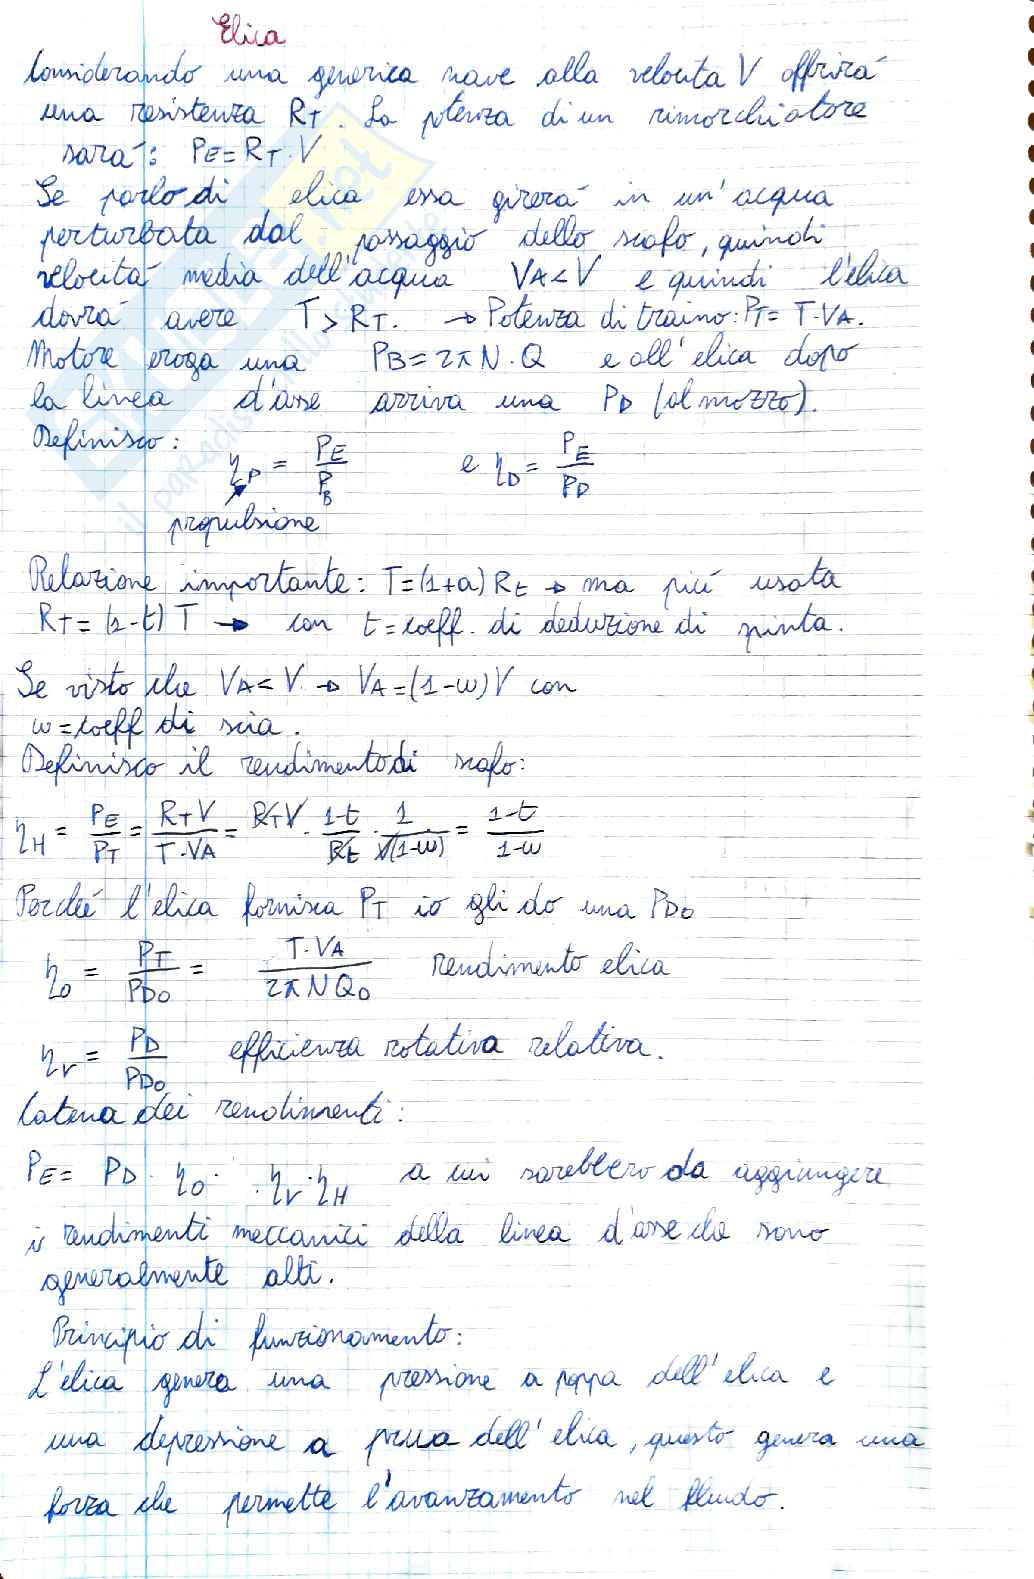 Elica
Considerando una generica nave alla velocità V offrirà
una resistenza RT. La potenza di un rimorchiatore
sarà: PE=RT·V
Se parlo di elica essa girerà in un'acqua
perturbata dal passaggio dello scafo, quindi
velocità media dell'acqua VA<V e quindi l'elica
dovrà avere T>RT. → Potenza di traino: PT=T·VA.
Motore eroga una PB=2πN·Q e all'elica dopo
la linea d'asse arriva una PD (al mozzo).
Definisco: ηP = PE/PB e ηD = PE/PD
propulsione
Relazione importante: T=(1+a)RE → ma più usata
RT=(1-t)T → con t=coeff. di deduzione di spinta.
Se visto che VA<V → VA=(1-w)V con
w=coeff di scia.
Definisco il rendimento di scafo:
ηH = PE/PT = RTV/T·VA = RTV · 1-t/Rt · 1/V(1-w) = 1-t/1-w
Perché l'elica fornisca PT io gli do una PDO
ηO = PT/PDO = T·VA/2πNQO rendimento elica
ηr = PD/PDO efficienza rotativa relativa.
Catena dei rendimenti:
PE= PD · ηO · · ηr · ηH a cui sarebbero da aggiungere
i rendimenti meccanici della linea d'asse che sono
generalmente alti.
Principio di funzionamento:
L'elica genera una pressione a poppa dell'elica e
una depressione a prua dell'elica, questo genera una
forza che permette l'avanzamento nel fluido.